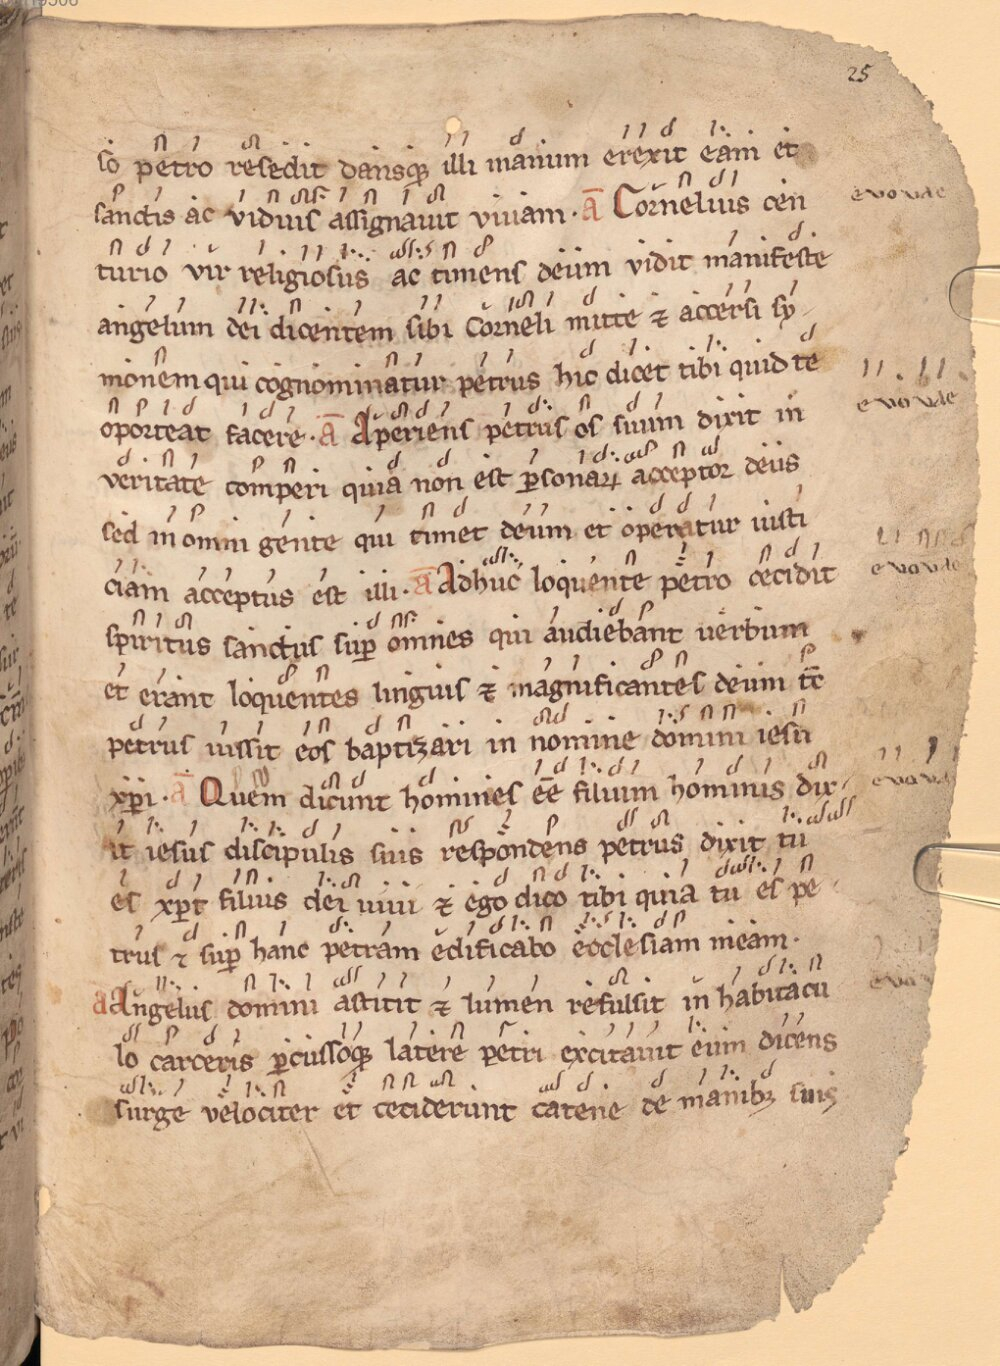 25
so petro resedit dansq; illi manum erexit eam et
sanctis ac viduis assignauit viuam · a̅ Cornelius cen
euouae
turio vir religiosus ac timens deum vidit manifeste
angelum dei dicentem sibi Corneli mitte ⁊ accersi sy
monem qui cognominatur petrus hic dicet tibi quid te
oporteat facere · a̅ Aperiens petrus os suum dixit in
euouae
veritate comperi quia non est ꝑsonaꝝ acceptor deus
sed in omni gente qui timet deum et operatur iusti
ciam acceptus est illi · a̅ Adhuc loquente petro cecidit
euouae
spiritus sanctus suꝑ omnes qui audiebant uerbum
et erant loquentes linguis ⁊ magnificantes deum tc̅
petrus iussit eos baptizari in nomine domini iesu
xp̅i · a̅ Quem dicunt homines ee̅ filium hominis dix
euouae
it iesus discipulis suis respondens petrus dixit tu
es xp̅c filius dei uiui ⁊ ego dico tibi quia tu es pe
trus ⁊ suꝑ hanc petram edificabo ecclesiam meam ·
a̅ Angelus domini astitit ⁊ lumen refulsit in habitacu
lo carceris ꝑcussoq; latere petri excitauit eum dicens
surge velociter et ceciderunt catene de manib; suis